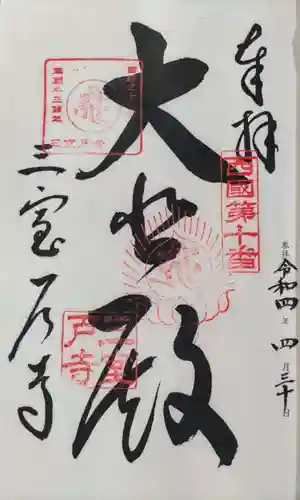 奉拝
西國第十番
奉拝 令和四年四月三十日
大悲殿
三室戸寺
三室戸寺